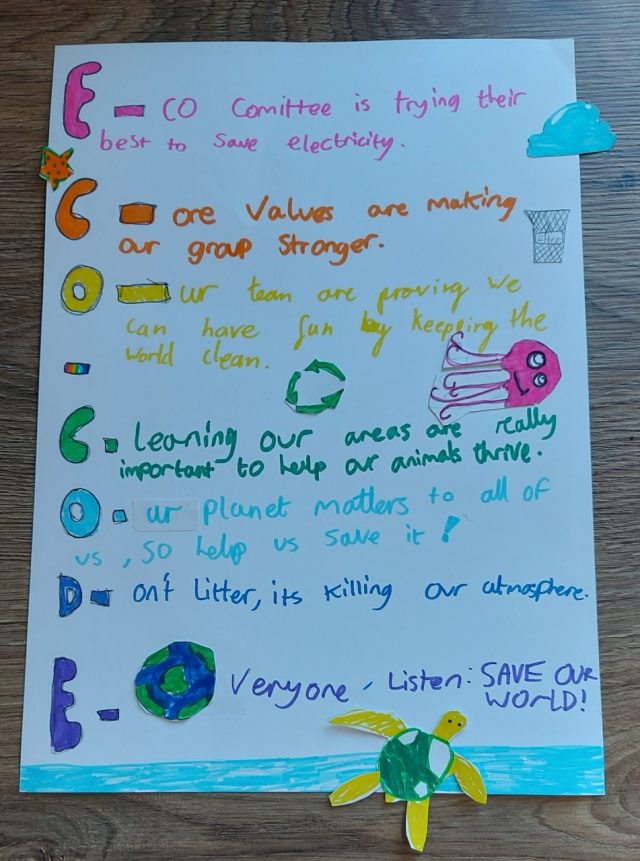 E - CO Comittee is trying their
best to save electricity.
C - ore Values are making
our group Stronger.
O - ur team are proving we
can have fun by keepping the
world clean.
-
C - Leaning our areas are really
important to help our animals thrive.
O - ur planet matters to all of
us, so help us save it!
D - on't Litter, its killing our atmosphere.
E - Veryone, Listen: SAVE OUR
WORLD!